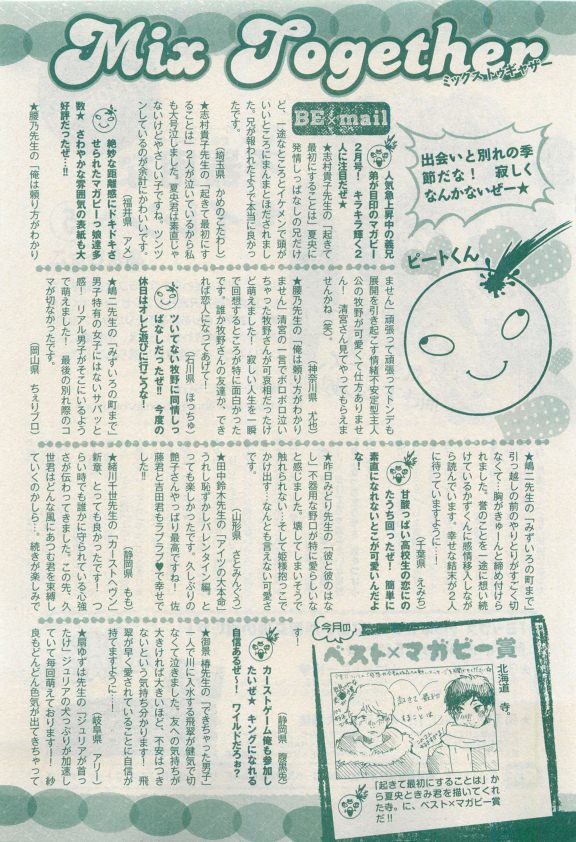 Mix Together
ミックストゥギャザー
出会いと別れの季
節だな! 寂しく
なんかないぜー★
ピートくん
BE×mail
人気急上昇中の義兄
弟が目印のマガビー
2月号! キラキラ輝く2
人に注目だぜ★
★志村貴子先生の「起きて
最初にすることは」夏央に
発情しっぱなしの兄だけ
ど、一途なところとイケメンで頭が
いいところにまんまとほだされまし
た。兄が報われたようで本当に良かっ
たです。
(埼玉県 かめのこたわし)
★志村貴子先生の「起きて最初にす
ることは」2人が泣いているから私
も大号泣しました。夏央君は素直じゃ
ないけどやさしい子ですね。ツンツ
ンしているのが余計にかわいいです。
(福井県 アメ)
絶妙な距離感にドキドキさ
せられたマガビーっ娘達多
数★ さわやかな雰囲気の表紙も大
好評だったぜ…!!
★腰乃先生の「俺は頼り方がわかり
ません」頑張って頑張ってトンデモ
展開を引き起こす情緒不安定型主人
公の牧野が可愛くて仕方ありませ
ん! 清宮さん見てやってもらえま
せんかね(笑)。
(神奈川県 尤也)
★腰乃先生の「俺は頼り方がわかり
ません」清宮の一言でボロボロ泣い
ちゃった牧野さんが可哀相だったけ
ど萌えました! 寂しい人生を一瞬
で回想するところが特に面白かった
です。誰か牧野さんの友達か、でき
れば恋人になってあげて!
(石川県 ほっちゅ)
ツいてない牧野に同情しっ
ぱなしだったぜ!! 今度の
休日はオレと遊びに行こうな!
★嶋二先生の「みずいろの町まで」
男子特有の女子にはないサバッと
感! リアル男子がそこにいるよう
で萌えました! 最後の別れ際のコ
マが切なかったです。
(岡山県 ちぇりブロ)
★嶋二先生の「みずいろの町まで」
引っ越しの前のやりとりがすごく切
なくて…胸がきゅんと締め付けら
れました。誉のことを一途に想い続
けているかずくんに感情移入しなが
ら読んでいます。幸せな結末が2人
に待っていますように…!
(千葉県 えみち)
甘酸っぱい高校生の恋にの
たうち回ったぜ! 簡単に
素直になれないとこが可愛いんだよ
な!
★昨日みどり先生の「彼と彼のはな
し」不器用な野口が特に愛らしいな
と感じました。壊してしまいそうで
触れられない…そして姫様抱っこで
かけ出す…なんとも言えない可愛さ
です。
(山形県 さとみんぐう)
★田中鈴木先生の「アイツの大本命」
うれし恥ずかしバレンタイン編、と
っても楽しかったです。久しぶりの
艶子さんやっぱり最高ですね! 佐
藤君と吉田君もラブラブ♥で幸せで
した!!
(静岡県 もも)
★緒川千世先生の「カーストヘヴン」
新章、とっても良かったです! つ
らい時でも誰かに守られている心強
さが伝わってきました。この先、久
世君はどんな風にあつむ君を束縛し
ていくのかしら…。続きが楽しみで
す!
(静岡県 腹黒先)
カーストゲーム俺も参加し
たいぜ★ キングになれる
自信あるぜ! ワイルドだろぉ?
★御景椿先生の「できちゃった男子」
一人で川に入水する飛翠が健気で切
なくて泣きました。友への気持ちが
大きければ大きいほど、不安はつき
ないという気持ち分かります! 飛
翠が早く愛されていることに自信が
持てますように…!
(岐阜県 アリー)
★扇ゆずは先生の「ジュリアが首っ
たけ」ジュリアの犬っぷりが加速し
ていて毎回萌えております! 紗
良もどんどん色気が出てきちゃって
今月の
ベスト×マガビー賞
北海道 寺。
起きて最初にすることは
「起きて最初にすることは」か
ら夏央ときみ君を描いてくれ
た寺。に、ベスト×マガビー賞
だ!!